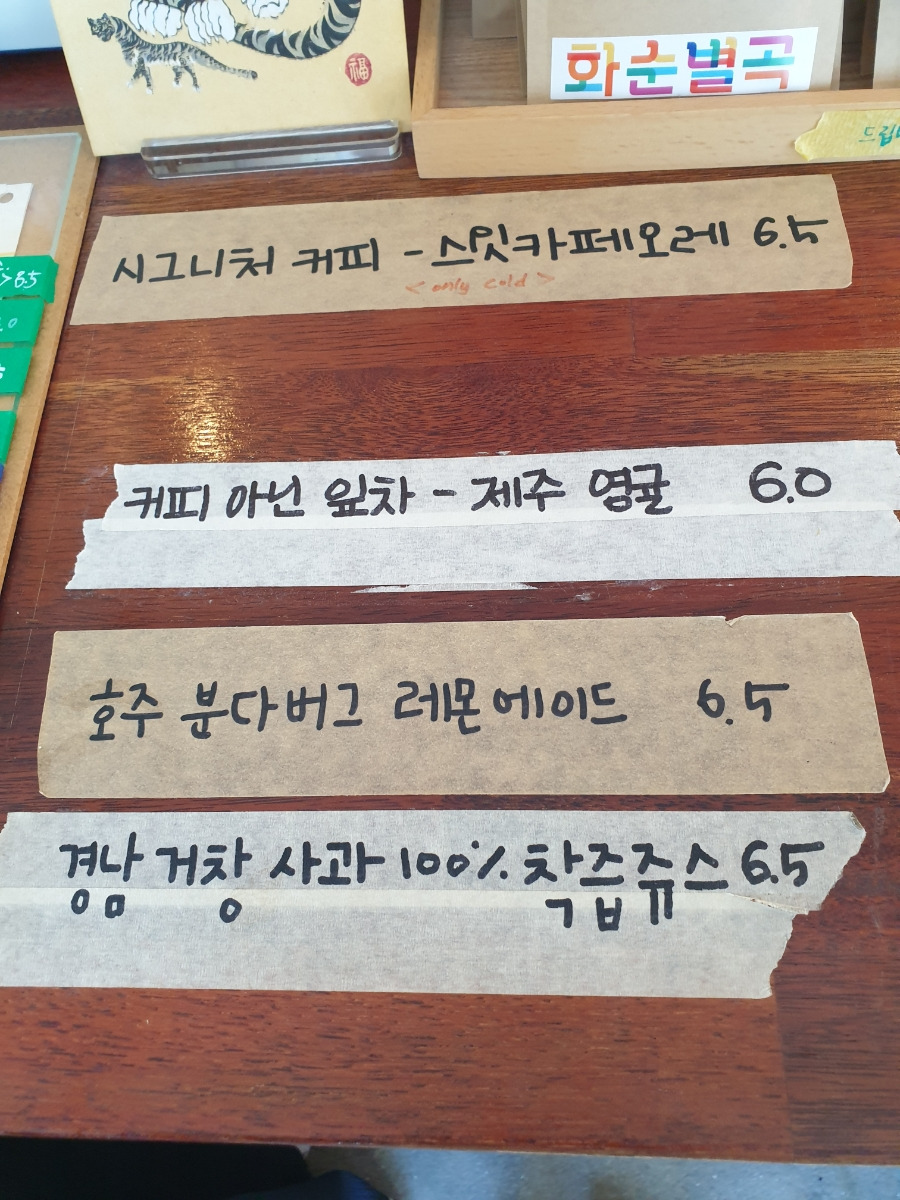 福
화순별곡
드립
시그니처 커피 - 스윗카페오레 6.5
< only cold >
6.5
커피 아닌 잎차 - 제주 영귤 6.0
호주 분다버그 레몬에이드 6.5
경남 거창 사과 100% 착즙쥬스 6.5